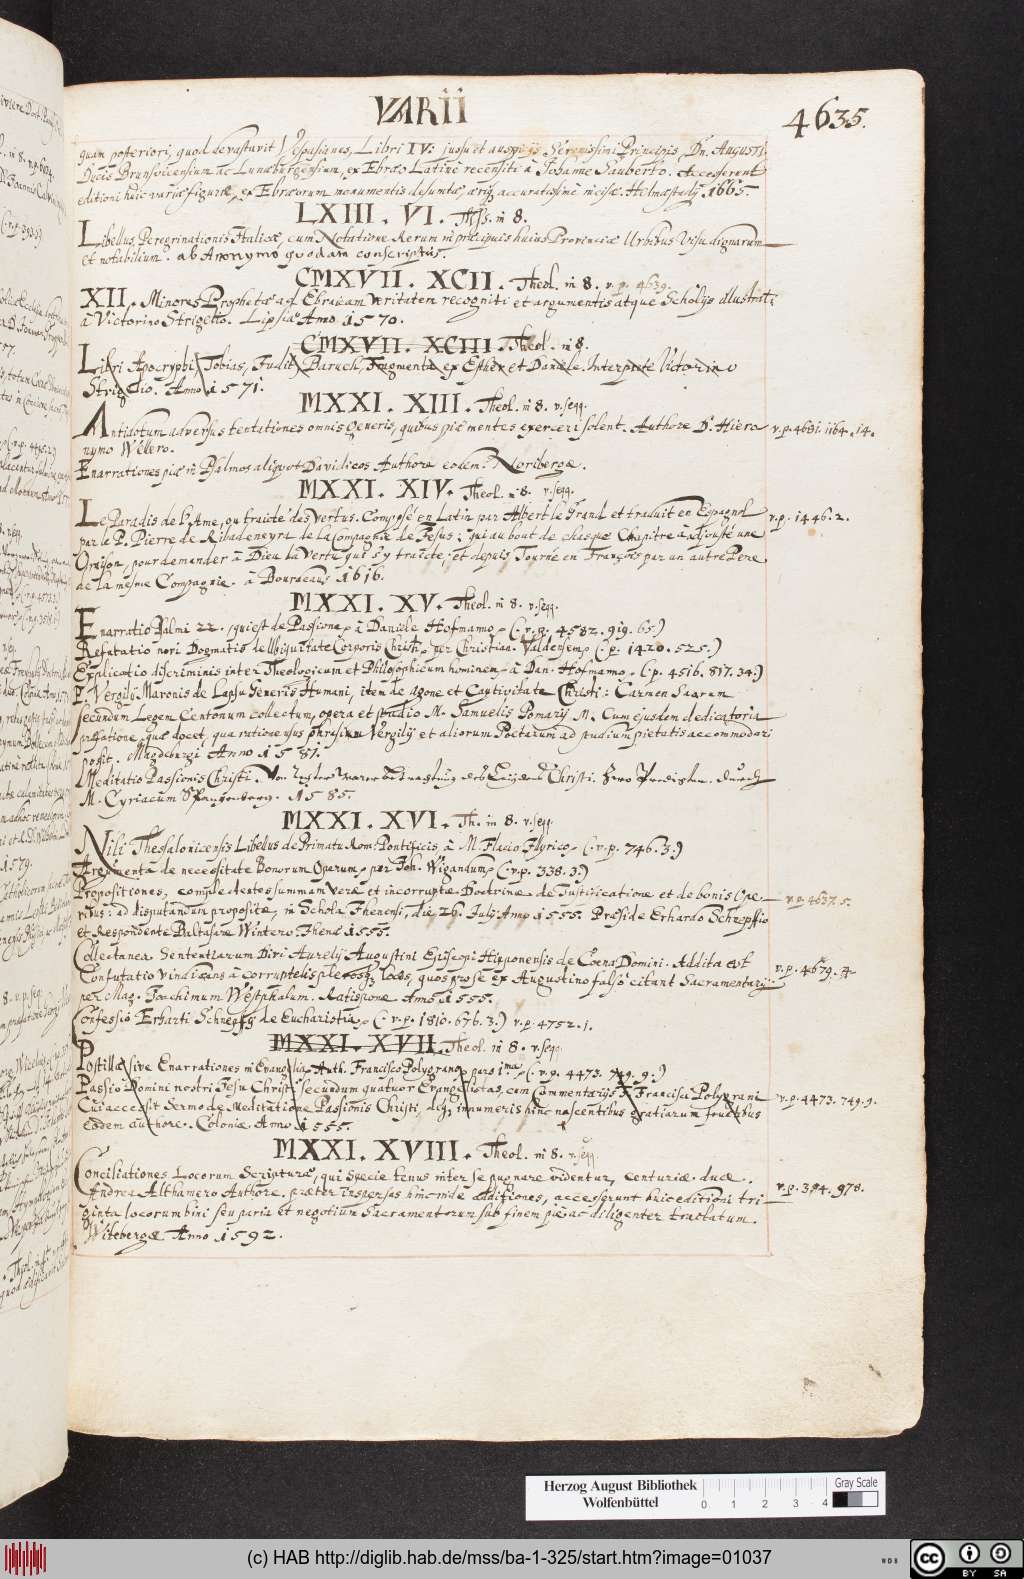 VARII
4635.
quam posteriori, quod devastavit Vespasianus, Libri IV: jussu et auspicijs Serenissimi Principis, Dn. AUGUSTI,
Ducis Brunsvicensium ac Lunæburgensium, ex Ebræo Latinè recensiti à Johanne Sauberto. Accesserunt
editioni huic variæ figuræ, ex Ebræorum monumentis desumtæ, ærique accuratissimè incisæ. Helmæstadij 1665.
LXIII. VI. Mss. in 8.
Libellus Peregrinationis Italicæ, cum Notatione Rerum in præcipuis huius Provinciæ Urbibus Visu dignarum
et notabilium. ab Anonymo quodam conscriptus.
CMXVII. XCII. Theol. in 8. v. p. 4639.
XII. Minores Prophetæ ad Ebraicam veritatem recogniti et argumentis atque Scholijs illustrati
à Victorino Strigelio. Lipsiæ Anno 1570.
CMXVII. XCIII. Theol. in 8.
Libri Apocryphi Tobias, Judith, Baruch, Fragmenta ex Esther et Daniele. Interprete Victorino
Strigelio. Anno 1571.
MXXI. XIII. Theol. in 8. v. seqq.
Antidotum adversus tentationes omnis generis, quibus piæ mentes exerceri solent. Authore D. Hiero
v. p. 4681. 1164. 14.
nymo Wellero.
Enarrationes piæ in Psalmos aliquot Davidicos Authore eodem. Noribergæ.
MXXI. XIV. Theol. in 8. v. seqq.
Le Paradis de l'Ame, ou traité des Vertus. Composé en Latin par Albert le Grand et traduit en Espagnol
v. p. 1446. 2.
par le P. Pierre de Ribadeneyra de la compagnie de Jesus: qui au bout de chasque Chapitre à adjousté une
Oraison, pour demander à Dieu la Vertu qui s'y traicte, et depuis Tourné en François par un autre Pere
de la mesme Compagnie. à Bourdeaus 1616.
MXXI. XV. Theol. in 8. v. seqq.
Enarratio Psalmi 22. qui est de Passione, à Daniele Hofmanno. (:v. p. 4582. 919. 65:)
Refutatio novi Dogmatis de Ubiquitate Corporis Christi, per Christian. Valdensem. (:p. 1420. 525.:)
Explicatio discriminis inter Theologicum et Philosophicum hominem, à Dan. Hofmanno. (:p. 4516. 817. 34:)
P. Vergilij Maronis de Lapsu Generis Humani, item de Agone et Captivitate Christi: Carmen Sacrum
secundum Legem Centonum collectum, opera et studio M. Samuelis Pomarij N. Cum ejusdem dedicatoria
præfatione, quæ docet, qua ratione usus phrasium Vergilij et aliorum Poetarum ad studium pietatis accommodari
possit. Magdeburgi Anno 1581.
Meditatio Passionis Christi. Von rechter warer betrachtung des Leydens Christi. Zwo Predigten. durch
M. Cyriacum Spangenberg. 1585.
MXXI. XVI. Th. in 8. v. seqq.
Nili Thessalonicensis Libellus de Primatu Rom: Pontificis, à M. Flacio Illyrico, (:v. p. 746. 3.:)
Argumenta de necesitate Bonorum Operum, per Joh. Wigandum. (:v. p. 338. 3:)
Propositiones, complectentes summam veræ et incorruptæ Doctrinæ de Justificatione et de bonis Ope-
v. p. 4637. 5.
ribus: ad disputandum propositæ, in Schola Jhenensi, die 26. Julij Anno 1555. Præside Erhardo Schnepffio
et Respondente Baltasare Wintero. Jhenæ 1555.
Collectanea Sententiarum Divi Aurelij Augustini Episcopi Hipponensis de Coena Domini. Addita est
v. p. 4679. 4
Confutatio vindicans à corruptelis plerosque locos, quos pro se ex Augustino falsò citant Sacramentarij
per Mag. Joachimum Westphalum. Ratisponæ Anno 1555.
Confessio Erharti Schnepffij de Eucharistia, (:v. p. 1810. 676. 3.:) v. p. 4752. 1.
MXXI. XVII. Theol. in 8. v. seqq.
Postillæ sive Enarrationes in Evangelia, Auth. Francisco Polygrano, pars 1.ma (:v. p. 4473. 749. 9.:)
Passio Domini nostri Jesu Christi secundum quatuor Evangelistas, cum Commentarijs F. Francisci Polygrani
v. p. 4473. 749. 9.
Cui accessit Sermo de Meditatione Passionis Christi, deque innumeris hinc nascentibus gratiarum fructibus
eodem authore. Coloniæ Anno 1555.
MXXI. XVIII. Theol. in 8. v. seqq.
Conciliationes Locorum Scripturæ, qui specie tenus inter se pugnare videntur, centuriæ duæ.
Andrea Althamero Authore, præter inspersas hinc inde additiones, accesserunt huic editioni tri-
v. p. 384. 978.
ginta locorum bini seu paria et negotium Sacramentorum sub finem piè ac diligenter tractatum.
Witebergæ Anno 1592.
Herzog August Bibliothek
Wolfenbüttel
0 1 2 3 4
Gray Scale
(c) HAB http://diglib.hab.de/mss/ba-1-325/start.htm?image=01037
WDB
cc BY SA